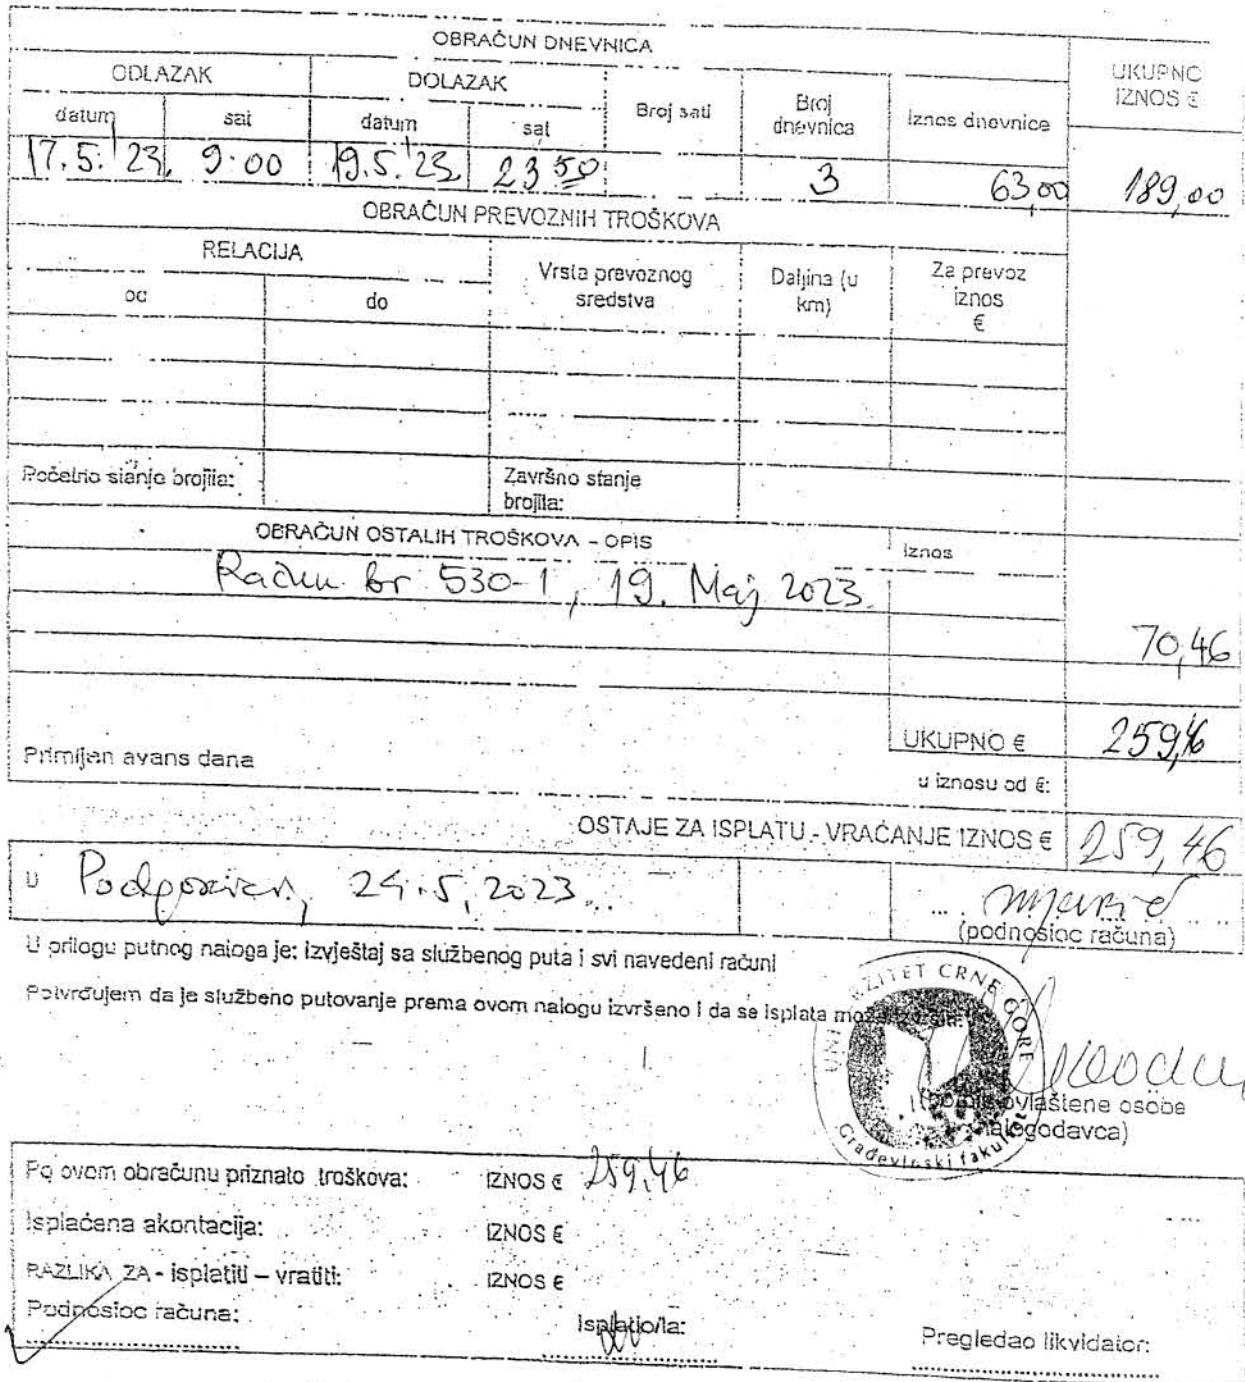 OBRAČUN DNEVNICA
UKUPNO IZNOS €
ODLAZAK DOLAZAK Broj sati Broj dnevnica Iznos dnevnice
datum sat datum sat
17.5.23. 9:00 19.5.23. 23 50 3 63,00 189,00
OBRAČUN PREVOZNIH TROŠKOVA
RELACIJA Vrsta prevoznog sredstva Daljina (u km) Za prevoz iznos €
od do
Početno stanje brojila: Završno stanje brojila:
OBRAČUN OSTALIH TROŠKOVA - OPIS Iznos
Račun br 530-1, 19. Maj 2023.
70,46
UKUPNO € 259,46
Primljen avans dana
u iznosu od €:
OSTAJE ZA ISPLATU - VRAĆANJE IZNOS € 259,46
U Podgorici, 24.5.2023..
(podnosioc računa)
U prilogu putnog naloga je: izvještaj sa službenog puta i svi navedeni računi
Potvrđujem da je službeno putovanje prema ovom nalogu izvršeno i da se isplata može
UNIVERZITET CRNE GORE
Građevinski fakultet
ovlaštene osobe
nalogodavca)
Po ovom obračunu priznato troškova: IZNOS € 259,46
Isplaćena akontacija: IZNOS €
RAZLIKA ZA - isplatiti – vratiti: IZNOS €
Podnosioc računa: Isplatio/la: Pregledao likvidator: